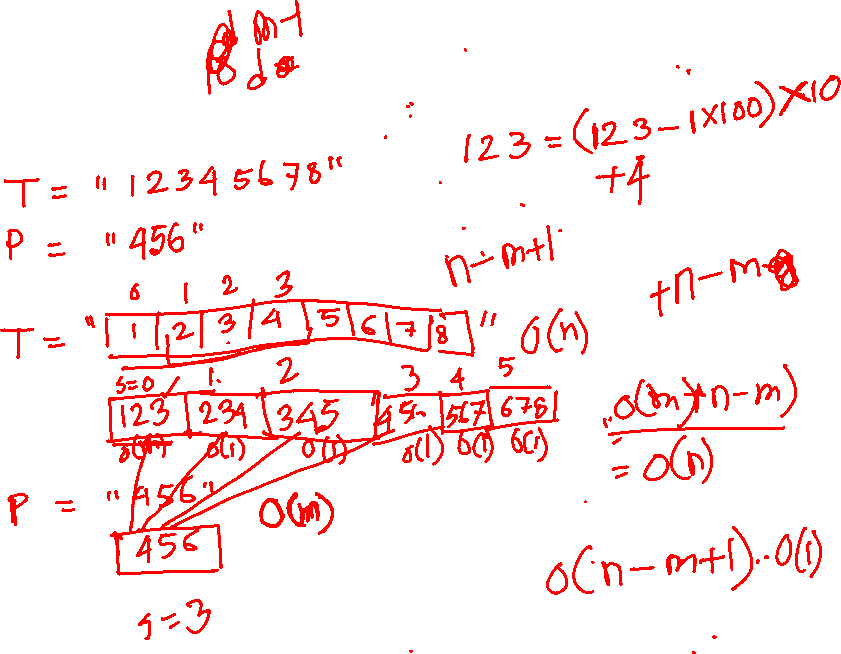 m-1
d
123 = (123-1×100)×10
+4
T = "12345678"
P = "456"
n-m+1
+n-m
0 1 2 3
T = "1 2 3 4 5 6 7 8" O(n)
s=0 1. 2 3 4 5
123 234 345 45 567 678
O(m) O(1) O(1) O(1) O(1) O(1)
O(m)+n-m)
= O(n)
P = "456" O(m)
456
O(n-m+1)..O(1)
s=3